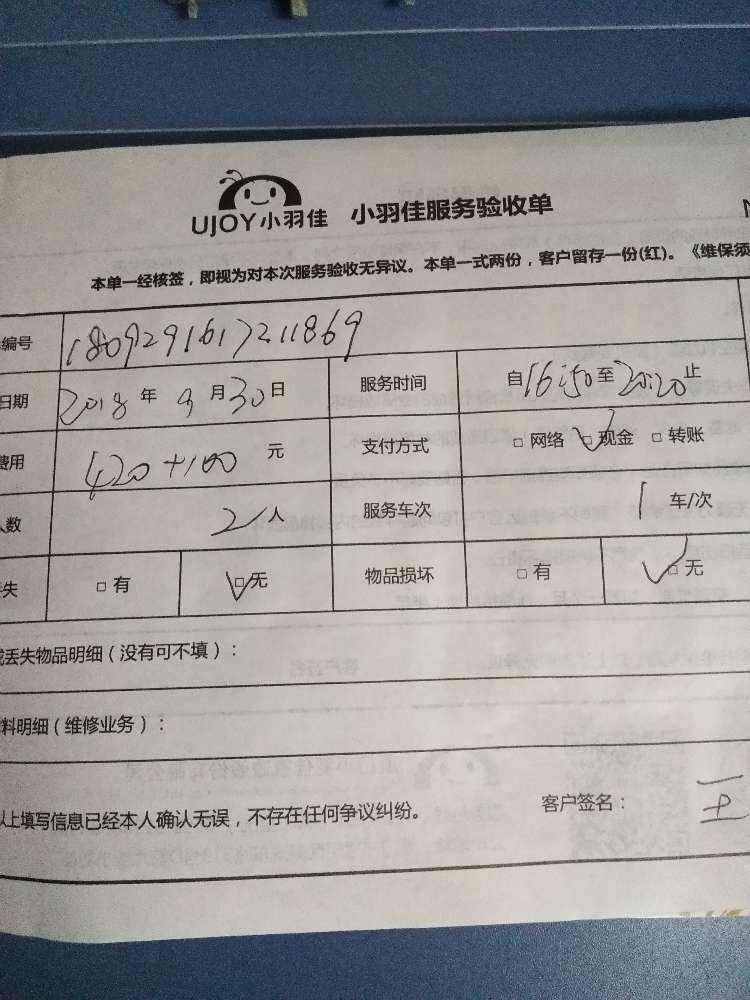 UJOY小羽佳 小羽佳服务验收单
本单一经核签，即视为对本次服务验收无异议。本单一式两份，客户留存一份(红)。《维保须
编号 1809291617211869
日期 2018年9月30日 服务时间 自16:50至20:20止
费用 420+100元 支付方式 □网络 □现金 □转账
人数 2人 服务车次 1车/次
失 □有 □无 物品损坏 □有 □无
丢失物品明细（没有可不填）：
料明细（维修业务）：
以上填写信息已经本人确认无误，不存在任何争议纠纷。 客户签名：